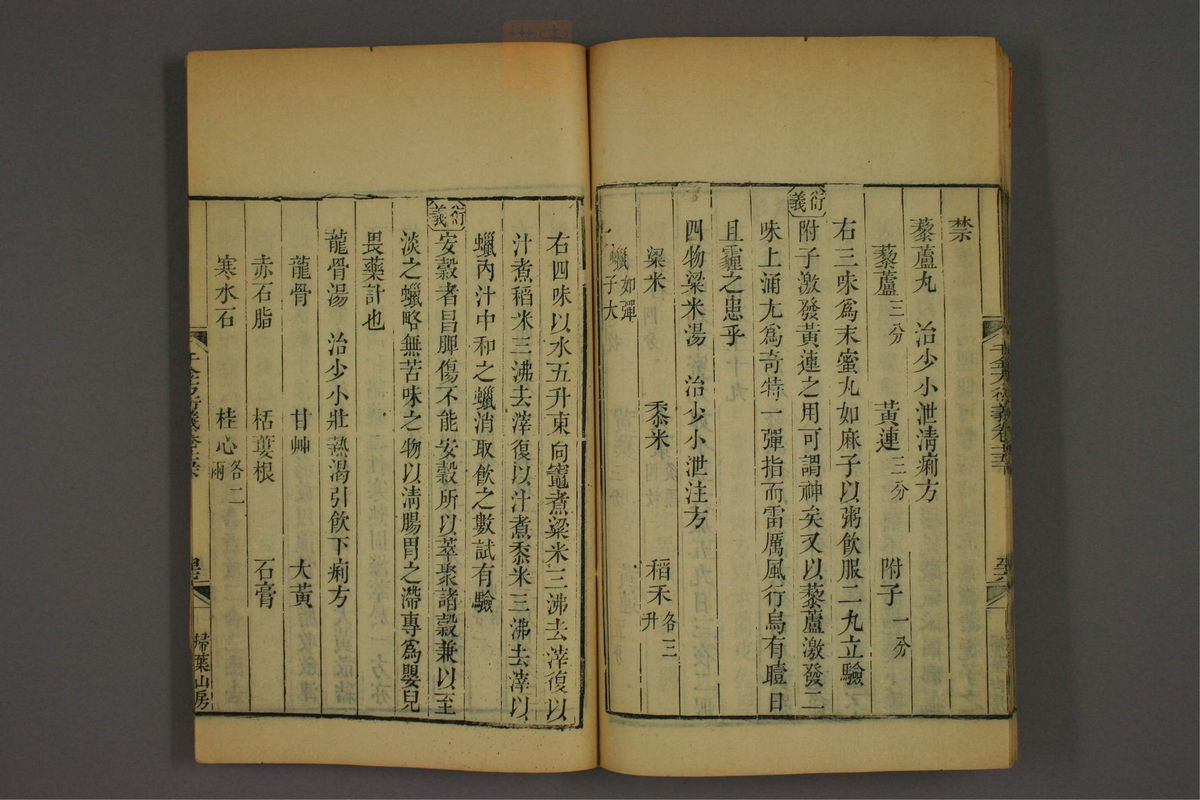 禁
藜蘆丸 治少小泄清痢方
藜蘆三分 黃連三分 附子一分
右三味爲末蜜丸如麻子以粥飲服二丸立驗
衍義
附子激發黃連之用可謂神矣又以藜蘆激發二
味上涌尢爲奇特一彈指而雷厲風行烏有曀日
且霾之患乎
四物粱米湯 治少小泄注方
粱米 黍米 稻禾各三升
蠟如彈子大
右四味以水五升東向竈煮粱米三沸去滓復以
汁煮稻米三沸去滓復以汁煮黍米三沸去滓以
蠟內汁中和之蠟消取飲之數試有驗
衍義
安穀者昌脾傷不能安穀所以萃聚諸穀兼以至
淡之蠟略無苦味之物以清腸胃之滯專爲嬰兒
畏藥計也
龍骨湯 治少小壯熱渴引飲下痢方
龍骨 甘艸 大黃
赤石脂 栝蔞根 石膏
寒水石 桂心各二兩
千金方衍義卷
掃葉山房